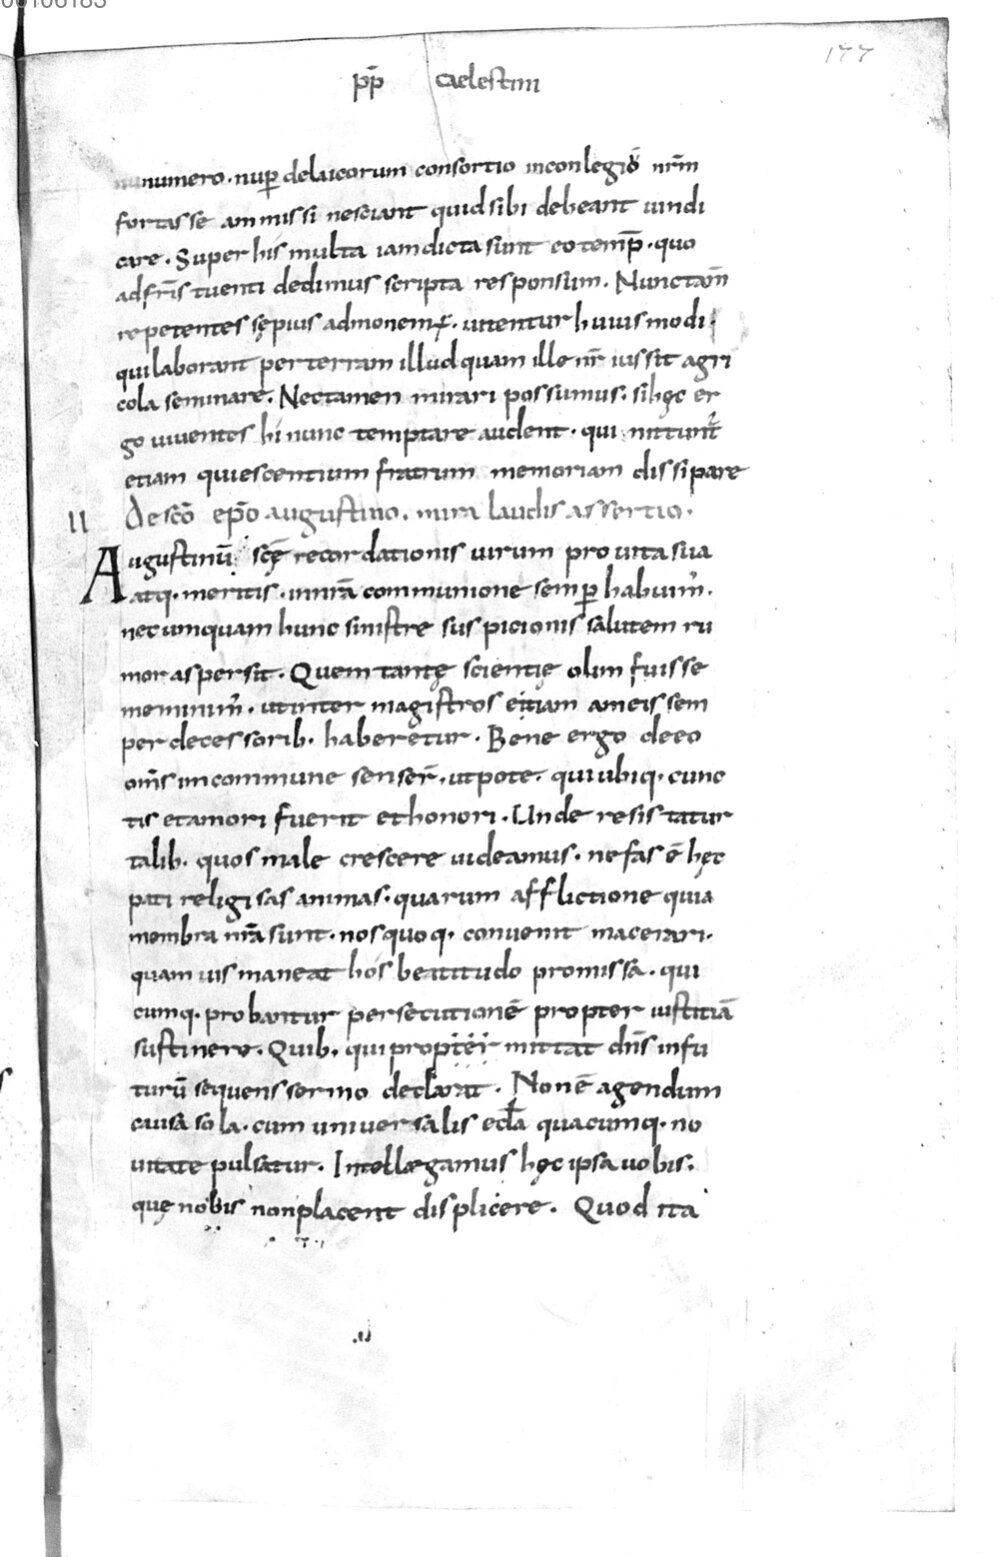 00106185
177
pp̄ caelestini
numero. nuꝑ delaicorum consortio inconlegiū nr̄m
fortasse ammissi nesciant quidsibi debeant uindi
care. Super his multa iamdicta sunt eo temp̄. quo
adfr̄is tuenti dedimus scripta responsum. Nunctam̄
repetentes sępius admonemꝰ. uitentur huiusmodi.
quilaborant perterram illud quam ille nr̄ iussit agri
cola seminare. Nectamen mirari possumus. sihęc er
go uiuentes hi nunc temptare audent. qui nittunt̄
etiam quiescentium fratrum memoriam dissipare
II De scō ep̄o augustino. mira laudis assertio.
Augustinū scę̄ recordationis uirum pro uita sua
atq. meritis. innr̄a communione semꝑ habuim̄.
nec umquam hunc sinistre suspicionis salutem ru
mor aspersit. Quem tantę scientię olim fuisse
meminim̄. utinter magistros etiam ameis sem
per decessorib. haberetur. Bene ergo deeo
om̄s incommune senser̄. utpote. quiubiq. cunc
tis etamori fuerit ethonori. Unde resistatur
talib. quos male crescere uideamus. nefas ē hęc
pati religisas animas. quarum afflictione quia
membra nr̄a sunt. nos quoq. conuenit macerari.
quam uis maneat hos beatitudo promissa. qui
cumq. probantur persecutionē propter iustitiā
sustinere. Quib. qui propterer mittat dn̄s infu
turū sequens sermo declarat. Nonē agendum
causa sola. cum uniuersalis ecl̄a quacumq. no
uitate pulsatur. Intellaegamus hęc ipsa uobis.
quę nobis nonplacent displicere. Quod ita